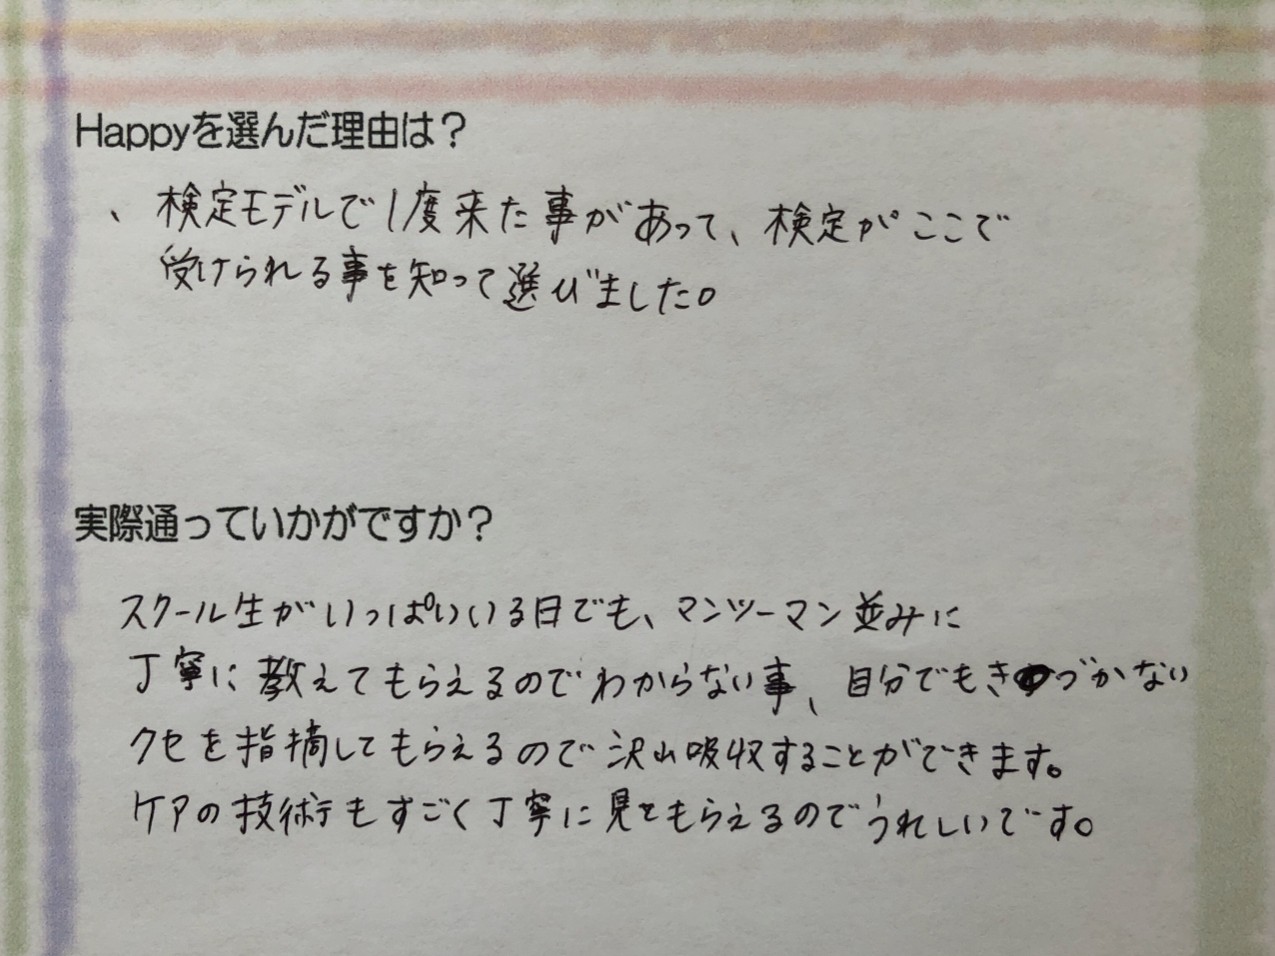 Happyを選んだ理由は？
、検定モデルで1度来た事があって、検定がここで
受けられる事を知って選びました。
実際通っていかがですか？
スクール生がいっぱいいる日でも、マンツーマン並みに
丁寧に教えてもらえるのでわからない事、自分でもきづかない
クセを指摘してもらえるので沢山吸収することができます。
ケアの技術もすごく丁寧に見てもらえるのでうれしいです。